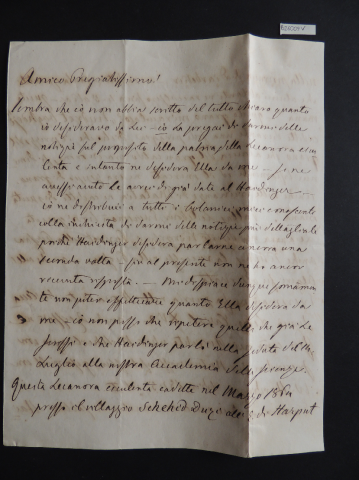 Amico Pregiatissimo!
Sembra che iò non abbia scritto del tutto chiaro quanto
iò desiderava da Lei – iò La pregai di darmi delle
notizie sul proposito della patria della Lecanora escu-
lenta e intanto ne desidera Ella da me – Io ne
aveva già date al Haidinger
iò ne distribuii a tutti i botanici miei conoscenti
colla richiesta di darmi delle notizie più dettagliate
poiche Haidinger desidera parlarne ancora una
seconda volta – fin al presente non ne ho ancor
ricevuta risposta. – Mi dispiace dunque sommamen-
te non poter effettuare quanto Ella desidera da
me – iò non posso che ripetere quello che già Le
scrissi e che Haidinger parlò nella seduta del 14
Luglio alla nostra Accademia delle scienze.
Questa Lecanora esculenta cadette nel Marzo 1864
presso il villaggio Schehid Duzi di Harput